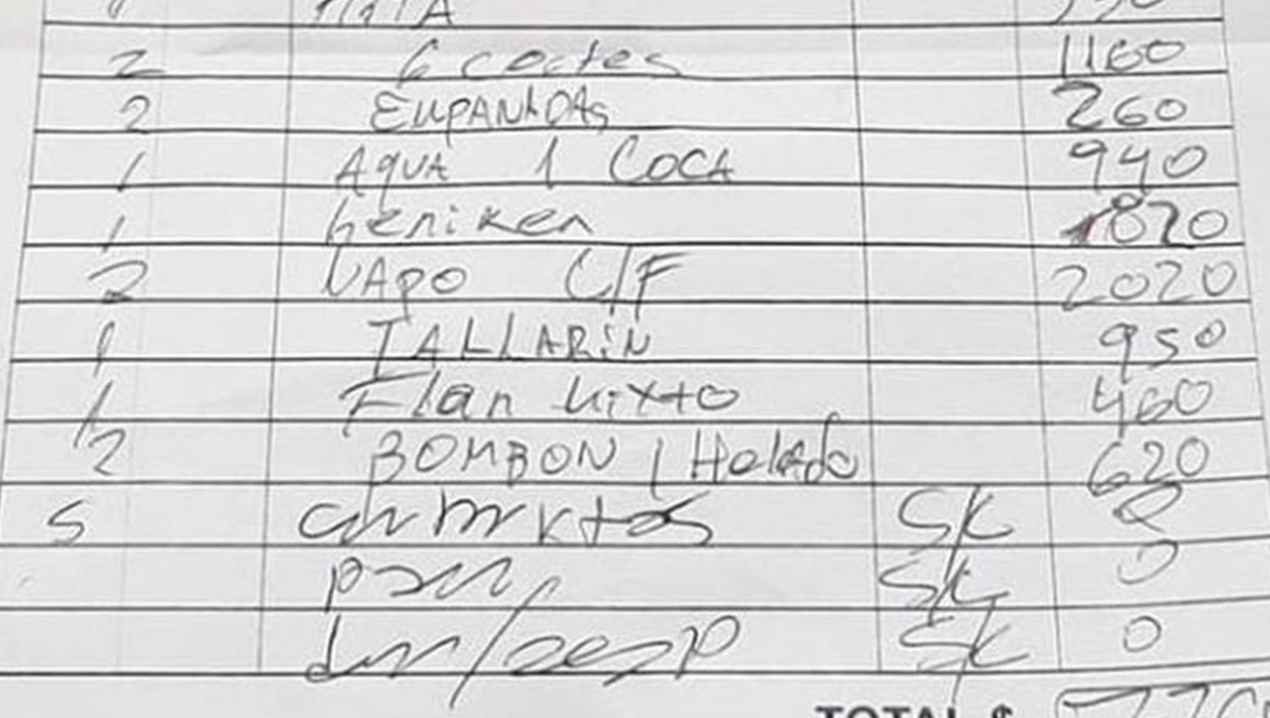 2 6 cortes 1160
2 EMPANADAS 260
1 AqUA 1 COCA 940
1 heniken 1820
2 VAPO C/F 2020
1 TALLARiN 950
1 Flan Mixto 460
1/2 BOMBON / Helado 620
5 SK 0
SK 0
SK 0
TOTAL $